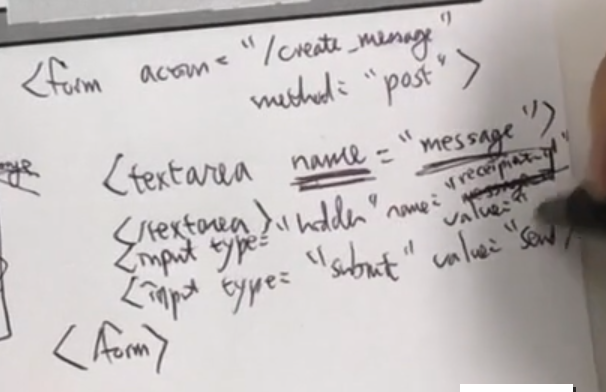 <form action="/create_message"
method="post">
<textarea name="message">
</textarea>
<input type="hidden" name="recipient_id"
value=
<input type="submit" value="send"
</form>